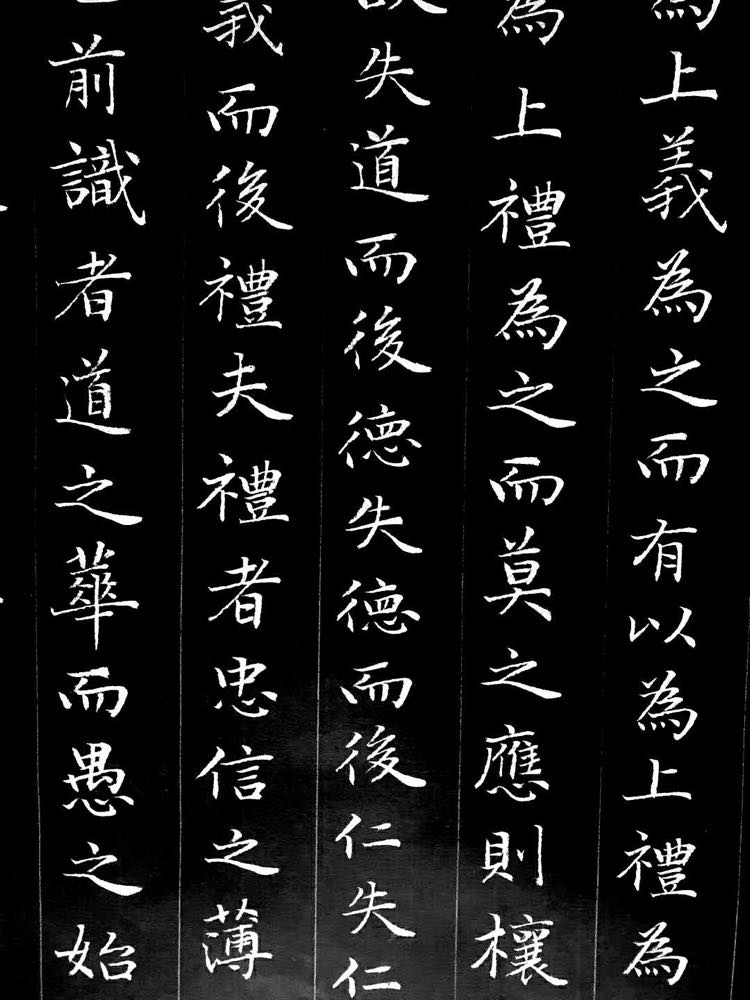 為上義為之而有以為上禮為
為上禮為之而莫之應則欀
失道而後德失德而後仁失仁
義而後禮夫禮者忠信之薄
前識者道之華而愚之始